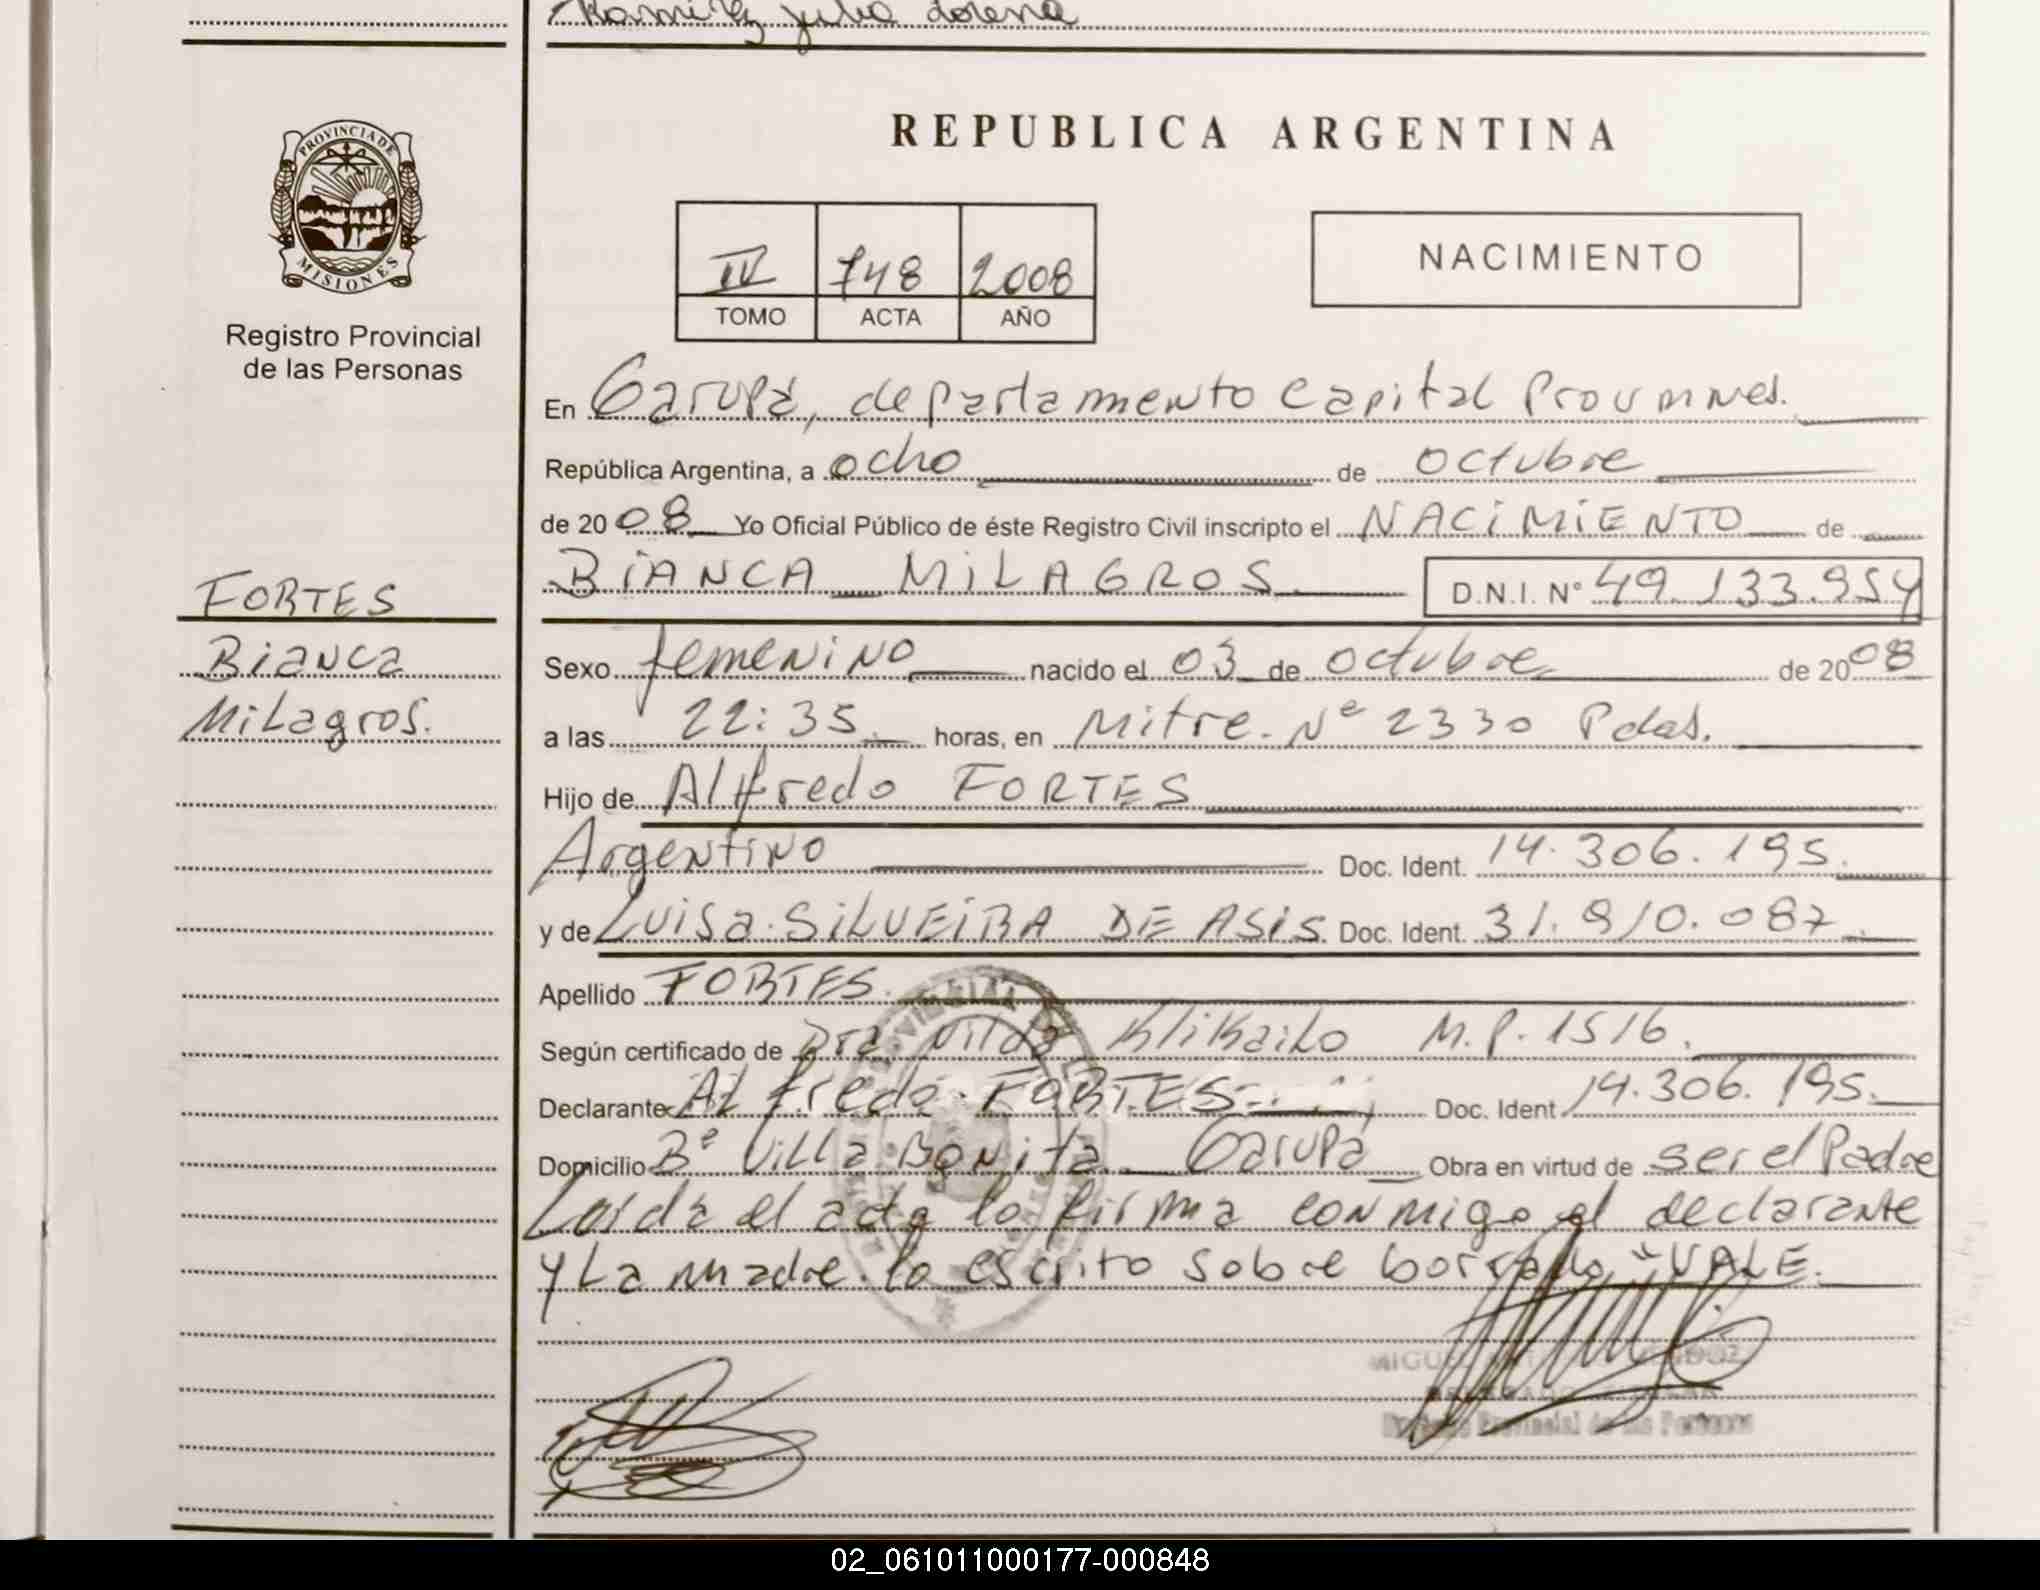 Ramirez Julia Lorena
PROVINCIA DE
MISIONES
Registro Provincial
de las Personas
REPUBLICA ARGENTINA
IV 748 2008
TOMO ACTA AÑO
NACIMIENTO
En Garupá, departamento Capital Prov Mnes.
República Argentina, a ocho de octubre
de 2008 Yo Oficial Público de éste Registro Civil inscripto el NACIMIENTO de
BIANCA MILAGROS D.N.I. Nº 49.133.954
FORTES
Bianca
Milagros.
Sexo femenino nacido el 03 de octubre de 2008
a las 22:35 horas, en Mitre. Nº 2330 Pdas.
Hijo de Alfredo FORTES
Argentino Doc. Ident. 14.306.195.
y de Luisa SILVEIRA DE ASIS Doc. Ident. 31.910.087
Apellido FORTES
Según certificado de Dra. Nilda Klikailo M.P. 1516.
Declarante Alfredo FORTES Doc. Ident 14.306.195.
Domicilio Bº Villa Bonita Garupá Obra en virtud de ser el Padre
Leída el acta la firma conmigo el declarante
y La madre. lo escrito sobre borrado "VALE.
MIGUEL
Provincial de las Personas
02_061011000177-000848